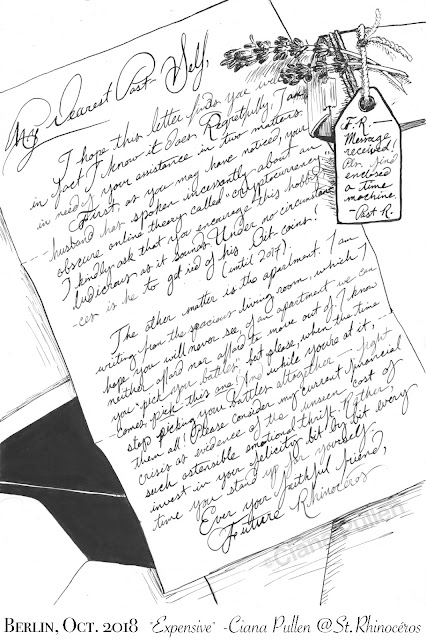 My Dearest Past-Self,
I hope this letter finds you well
in fact I know it does. Regretfully, I am
in need of your assistance in two matters.
First, as you may have noticed, your
husband has spoken incessantly about an
obscure online theory called "cryptocurrency"
I kindly ask that you encourage this hobby,
ludicrous as it sounds. Under no circumstan-
-ces is he to get rid of his Bit-coins!
(until 2017).
The other matter is the apartment. I am
writing from the spacious living room, which I
hope you will never see, of an apartment we can
neither afford nor afford to move out of. I know
you "pick your battles," but please, when the time
comes, pick this one! And while you're at it,
stop picking your battles altogether — fight
them all! Please consider my current financial
crisis as evidence of the unseen cost of
such ostensible emotional thrift. Rather,
invest in your felicity bit by bit every
time you stand up for yourself.
Ever your faithful friend,
Future Rhinocéros
F. R. —
Message
received!
Pls. find
enclosed
a time
machine.
- Past R.
-Ciana Pullen
Berlin, Oct. 2018 "Expensive" -Ciana Pullen @St.Rhinocéros